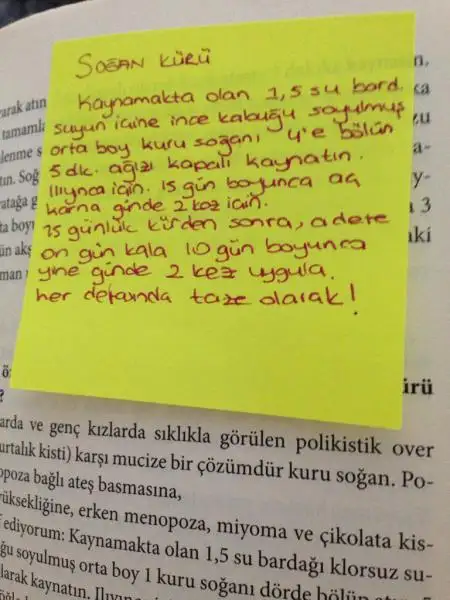 SOĞAN KÜRÜ
Kaynamakta olan 1,5 su bard.
suyun içine ince kabuğu soyulmuş
orta boy kuru soğanı 4'e bölün
5 dk. ağızı kapalı kaynatın.
Ilıyınca için. 15 gün boyunca aç
karna günde 2 kez için.
15 günlük kürden sonra, adete
on gün kala 10 gün boyunca
yine günde 2 kez uygula.
her defasında taze olarak!
arda ve genç kızlarda sıklıkla görülen polikistik over
urtalık kisti) karşı mucize bir çözümdür kuru soğan. Po-
opoza bağlı ateş basmasına,
üksekliğine, erken menopoza, miyoma ve çikolata kis-
ediyorum: Kaynamakta olan 1,5 su bardağı klorsuz su-
ğu soyulmuş orta boy 1 kuru soğanı dörde bölün
larak kaynatın.